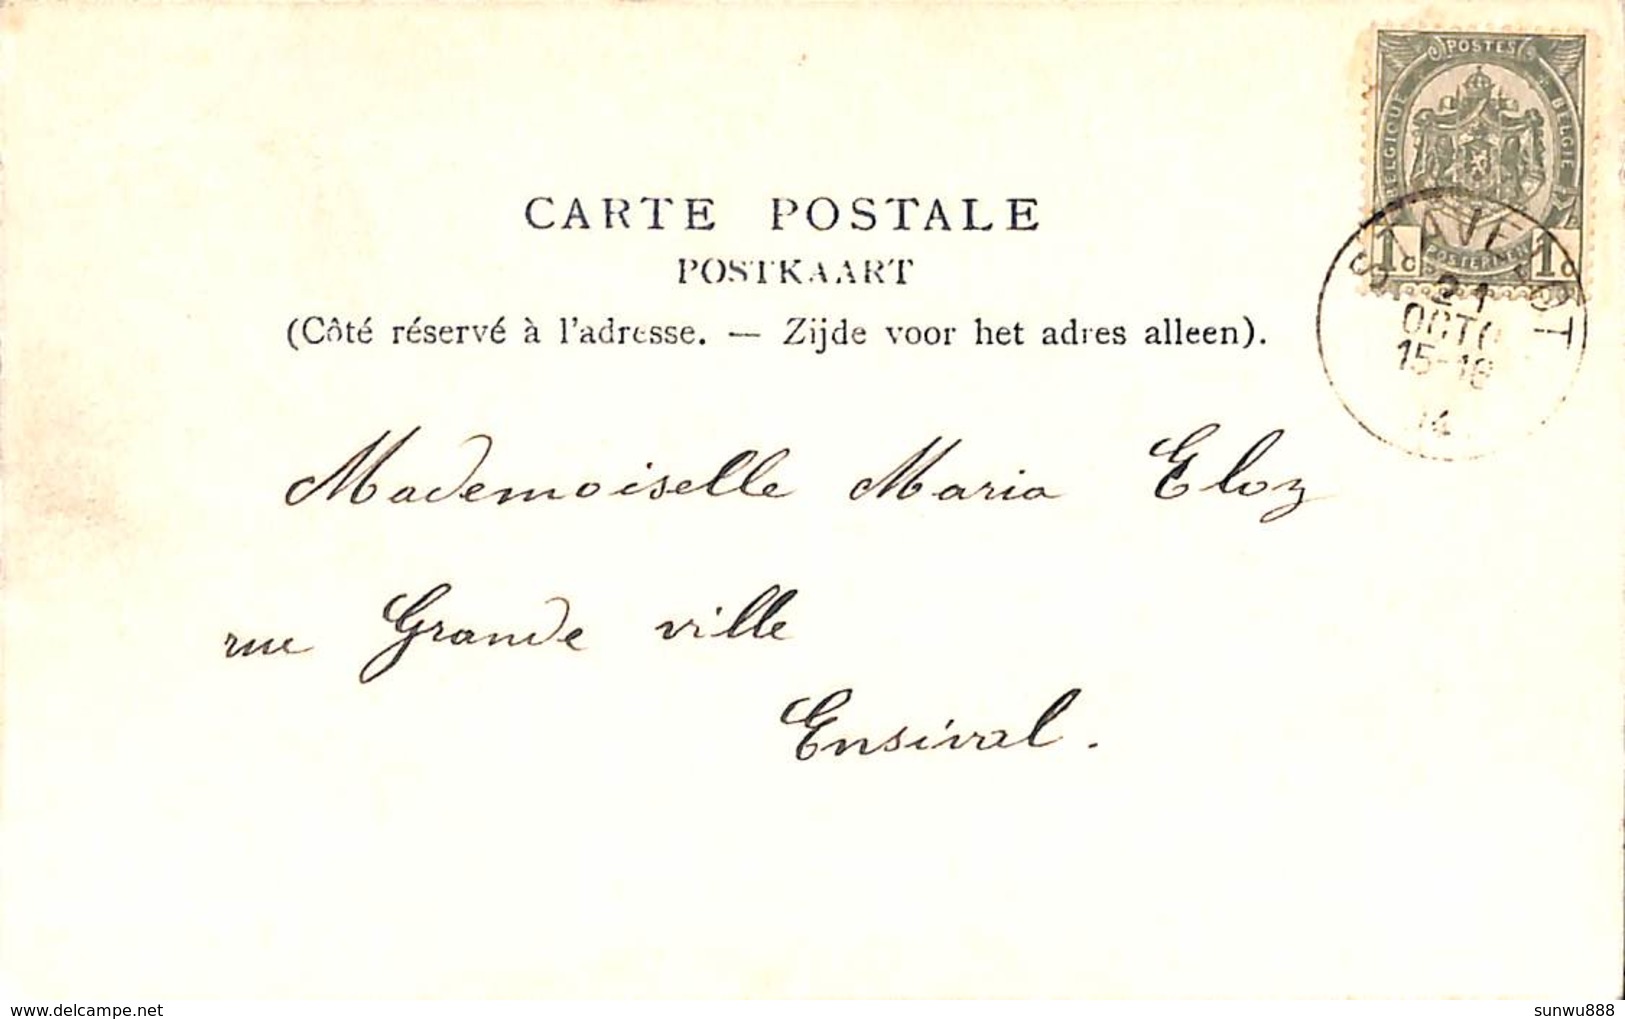 POSTES
BELGIQUE
BELGIE
1c
1c
CARTE POSTALE
POSTKAART
(Côté réservé à l'adresse. — Zijde voor het adres alleen).
STAVELOT
21
OCTO
15-16
Mademoiselle Maria Eloy
rue Grande ville
Ensival.
www.delcampe.net
sunwu888